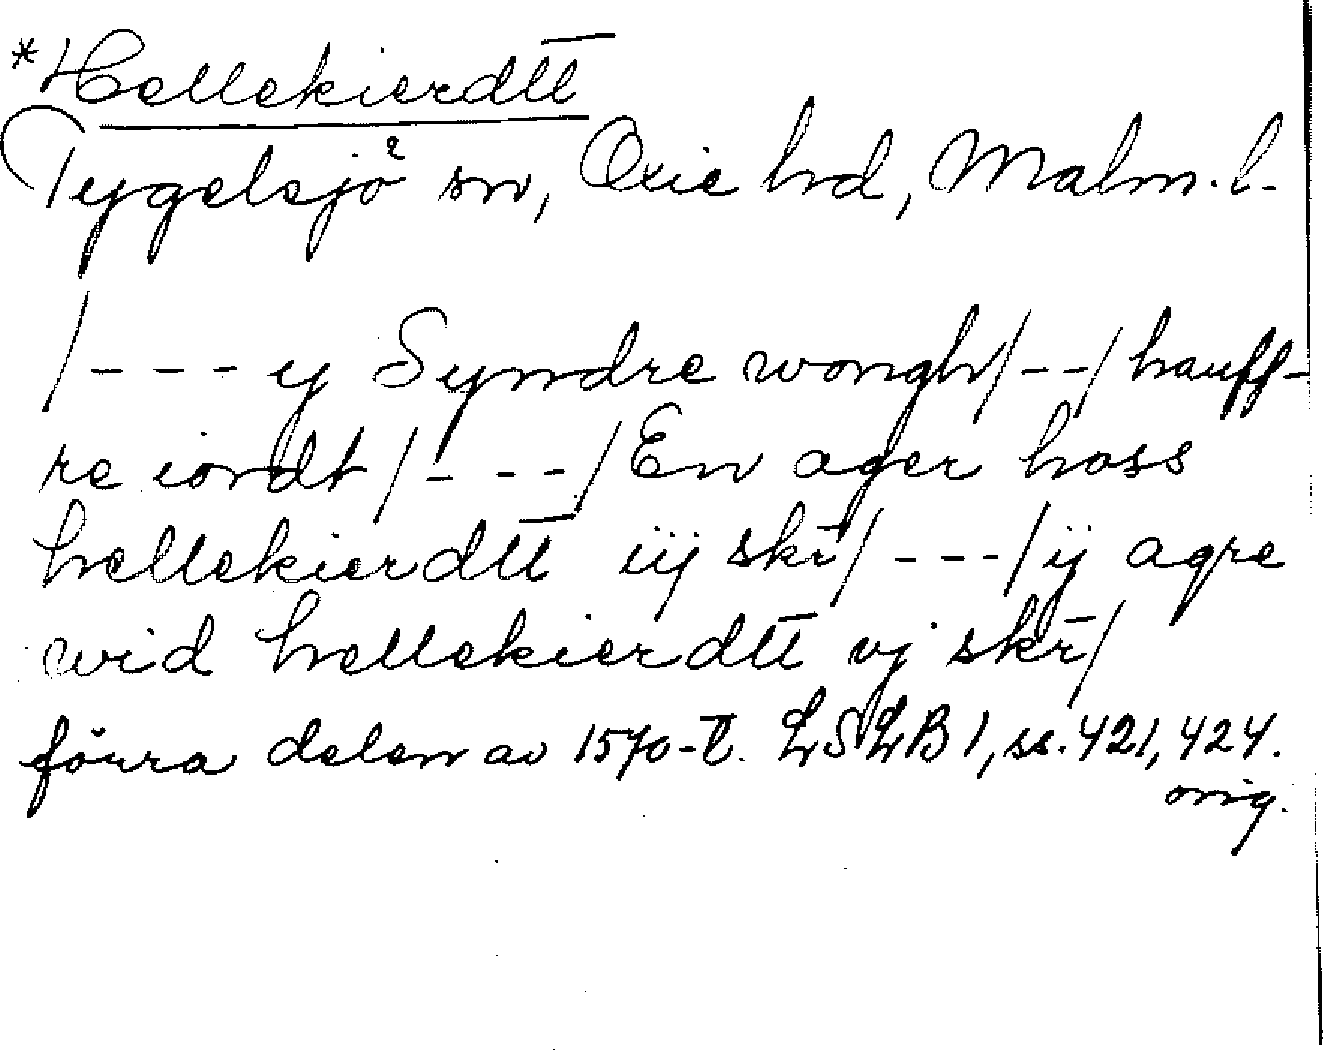 *Hellekierdtt̅
Tygelsjö² sn, Oxie hd, Malm. l.
/--- ij Syndre wongh/--/hauff-
re iordt/---/En ager hoss
hellekierdtt̅ iij skr̅/---/ij agre
wid hellekierdtt̅ vj skr̅/
förra delen av 1570-t. LSLB 1, ss. 421, 424.
orig.